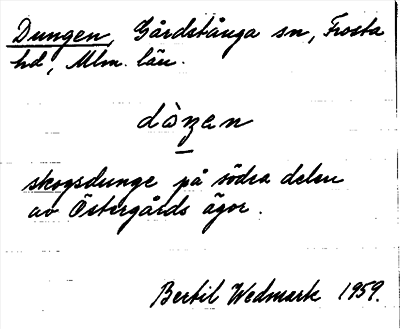 Dungen, Gårdstånga sn, Frosta
hd, Mlm. län.
dàŋen
skogsdunge på södra delen
av Östergårds ägor.
Bertil Wedmark 1959.